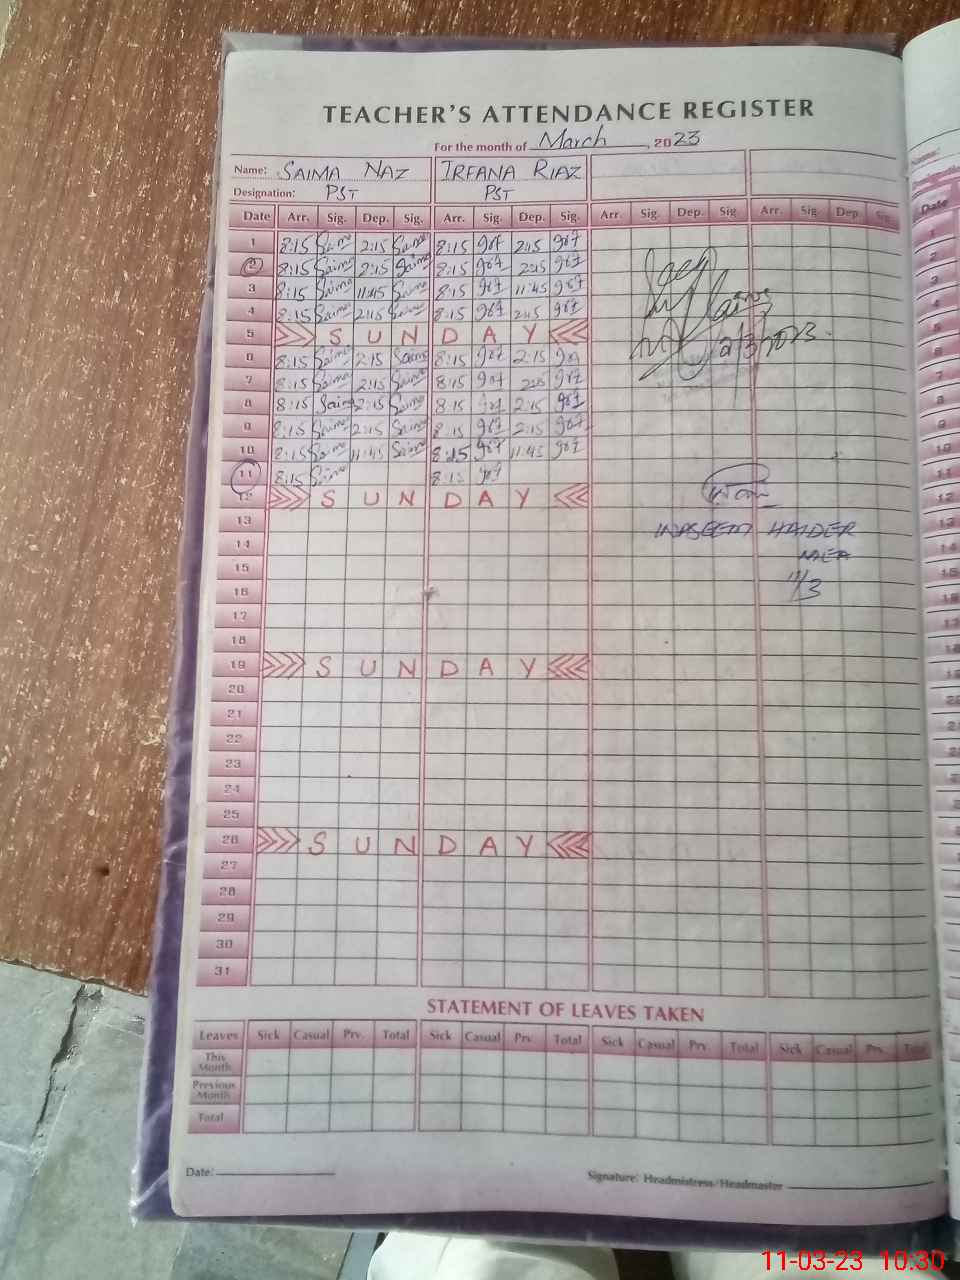 TEACHER'S ATTENDANCE REGISTER
For the month of March, 2023
Name: SAIMA NAZ IRFANA RIAZ
Designation: PST PST
Date Arr. Sig. Dep. Sig. Arr. Sig. Dep. Sig. Arr. Sig. Dep. Sig. Arr. Sig. Dep. Sig.
1 8:15 Saima 2:15 Saima 8:15 2:15
2 8:15 Saima 2:15 Saima 8:15 2:15
3 8:15 Saima 11:45 Saima 8:15 11:45
4 8:15 Saima 2:15 Saima 8:15 2:15
5 SUNDAY
6 8:15 Saima 2:15 Saima 8:15 2:15
7 8:15 Saima 2:15 Saima 8:15 2:15
8 8:15 Saima 2:15 Saima 8:15 2:15
9 8:15 Saima 2:15 Saima 8:15 2:15
10 8:15 Saima 11:45 Saima 8:15 11:45
11 8:15 Saima 8:15
12 SUNDAY
13
14
15
16
17
18
19 SUNDAY
20
21
22
23
24
25
26 SUNDAY
27
28
29
30
31
2/3/2023
WASEEM HAIDER
MEA
11/3
STATEMENT OF LEAVES TAKEN
Leaves Sick Casual Prv. Total Sick Casual Prv. Total Sick Casual Prv. Total Sick Casual Prv. Total
This Month
Previous Month
Total
Date:
Signature: Headmistress/Headmaster
Date
1
2
3
4
5
6
7
8
9
10
11
12
13
14
15
11-03-23 10:30